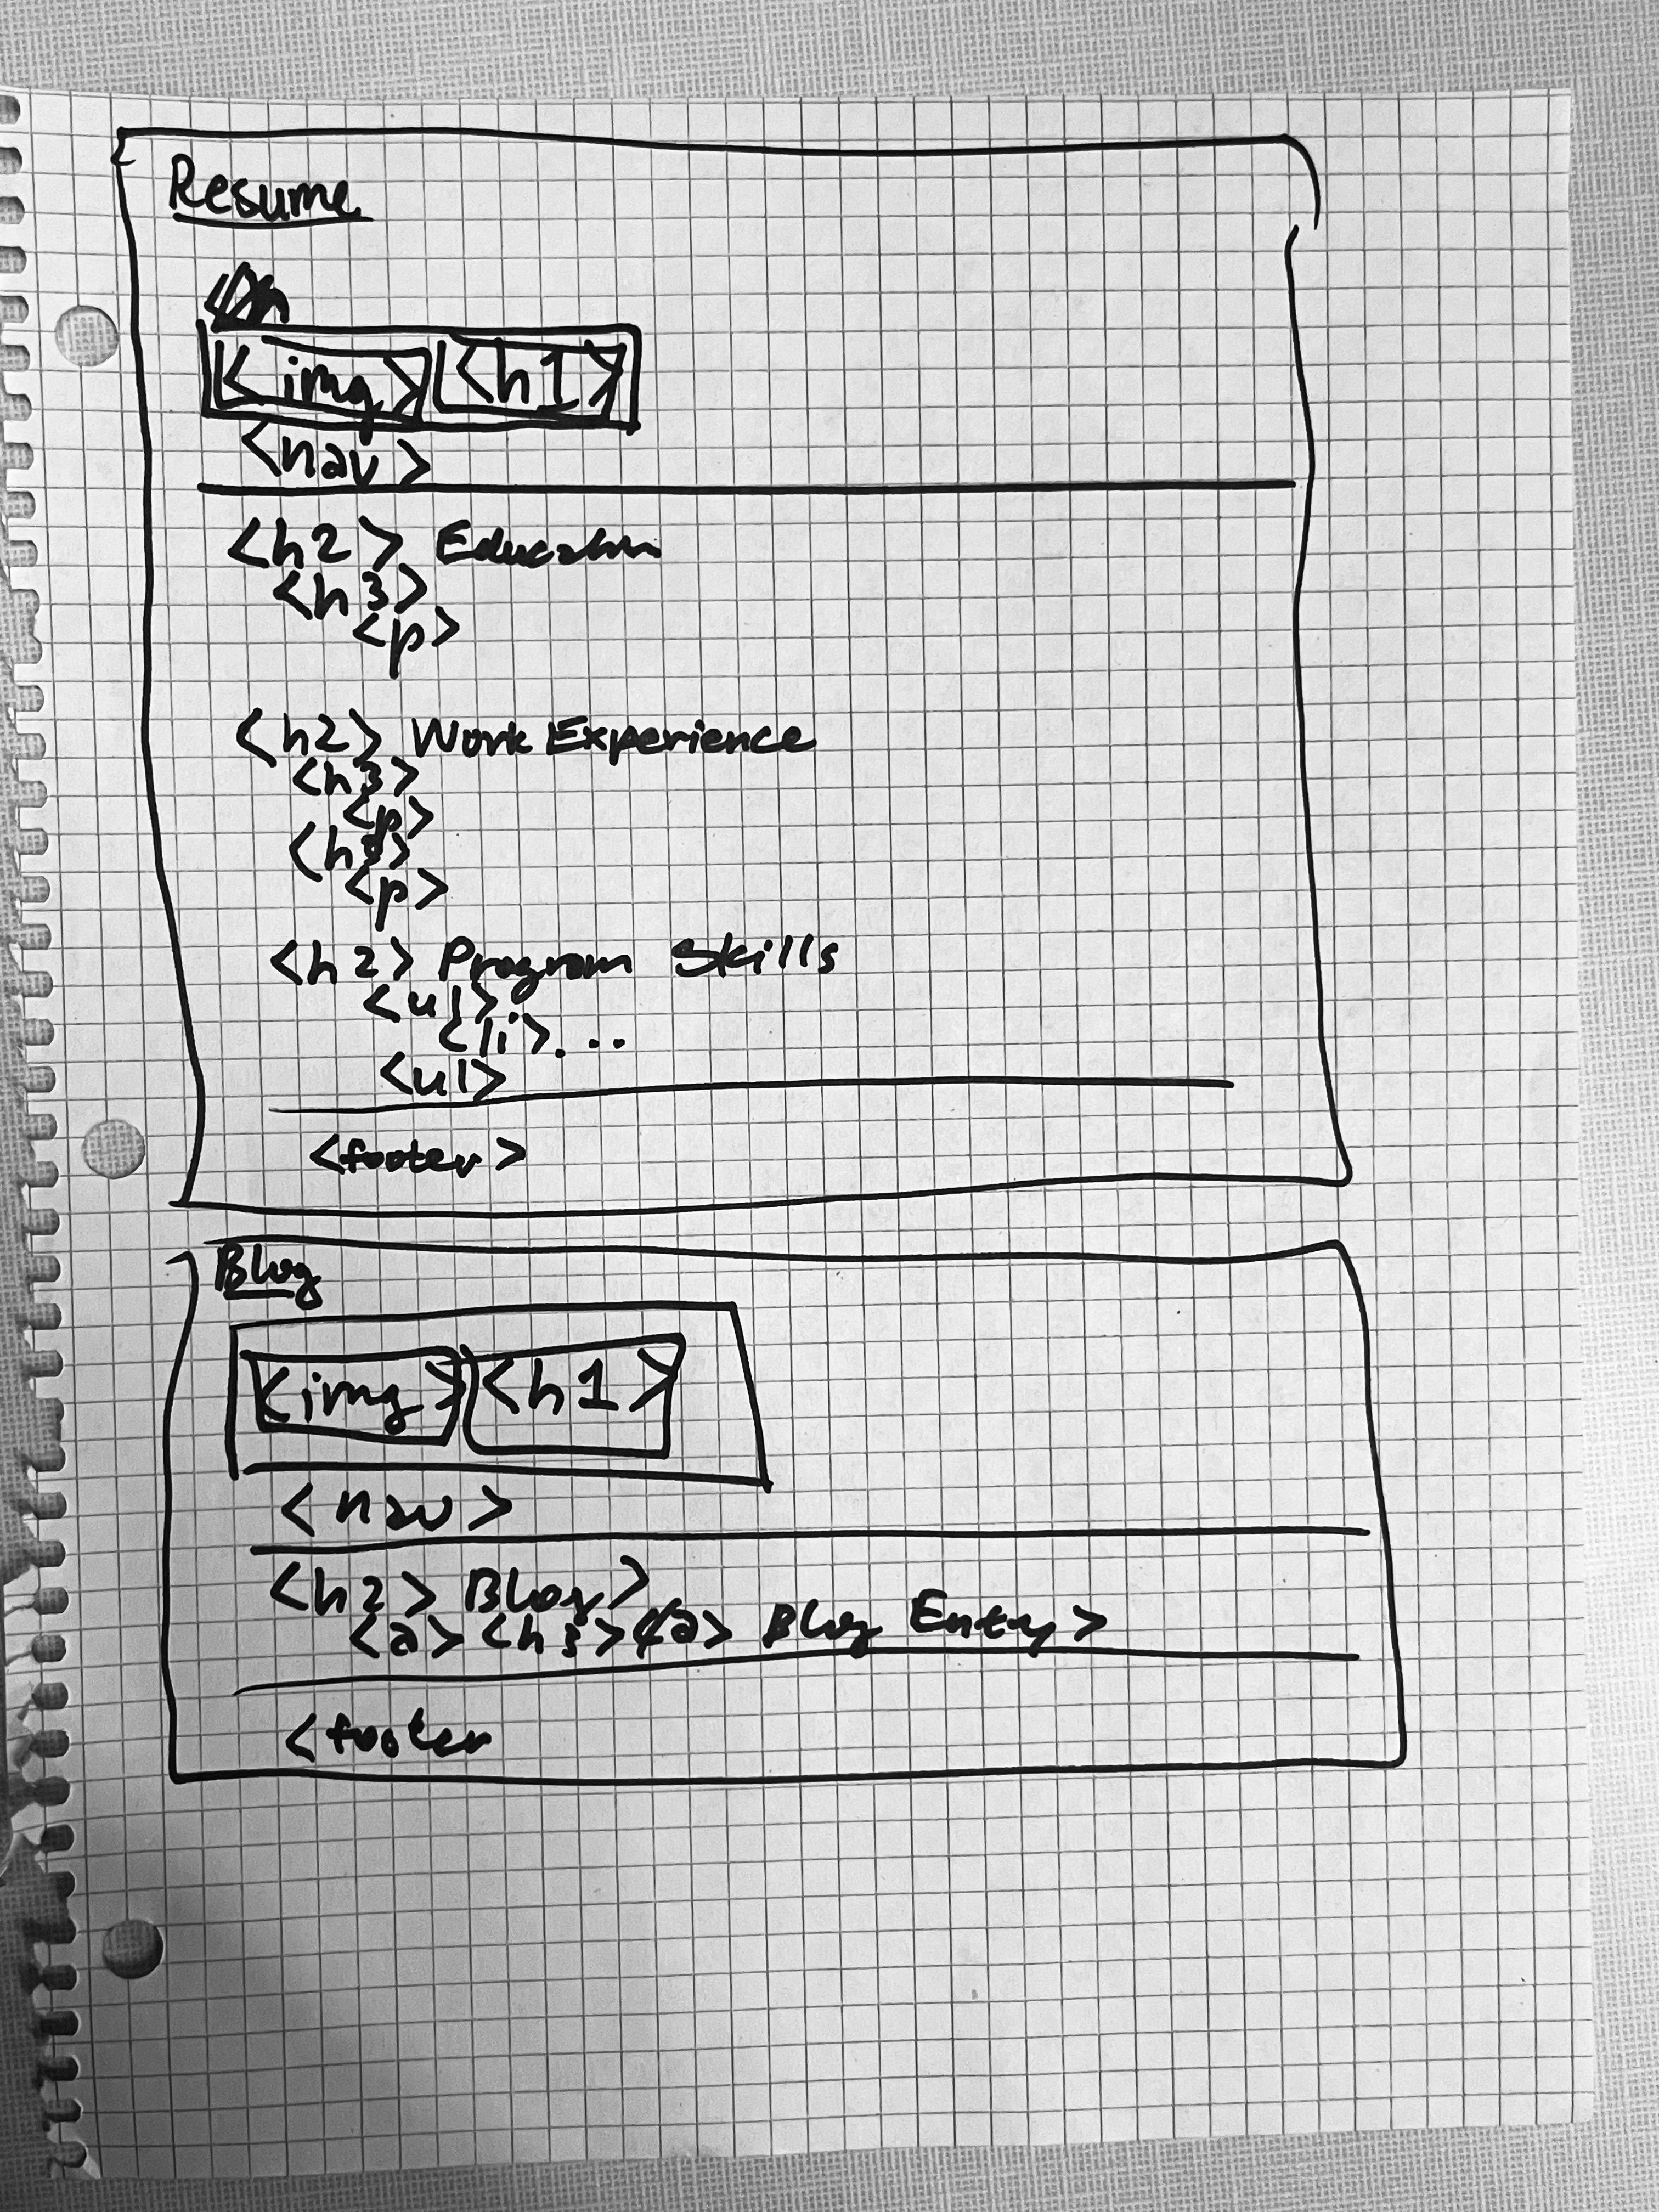 Resume
<img> <h1>
<nav>
<h2> Education
<h3>
<p>
<h2> Work Experience
<h3>
<p>
<h3>
<p>
<h2> Program Skills
<ul>
<li>...
<ul>
<footer>
Blog
<img> <h1>
<nav>
<h2> Blog>
<a> <h3> </a> Blog Entry>
<footer